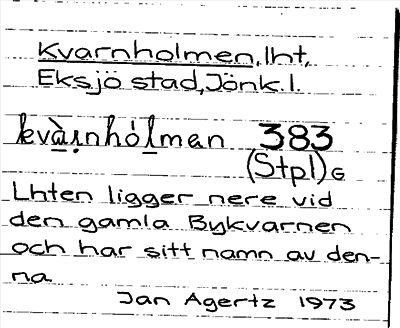 Kvarnholmen, lht,
Eksjö stad, Jönk. l.
kvàṛnhólman 383
(Stpl) G
Lhten ligger nere vid
den gamla Bykvarnen
och har sitt namn av den-
na
Jan Agertz 1973